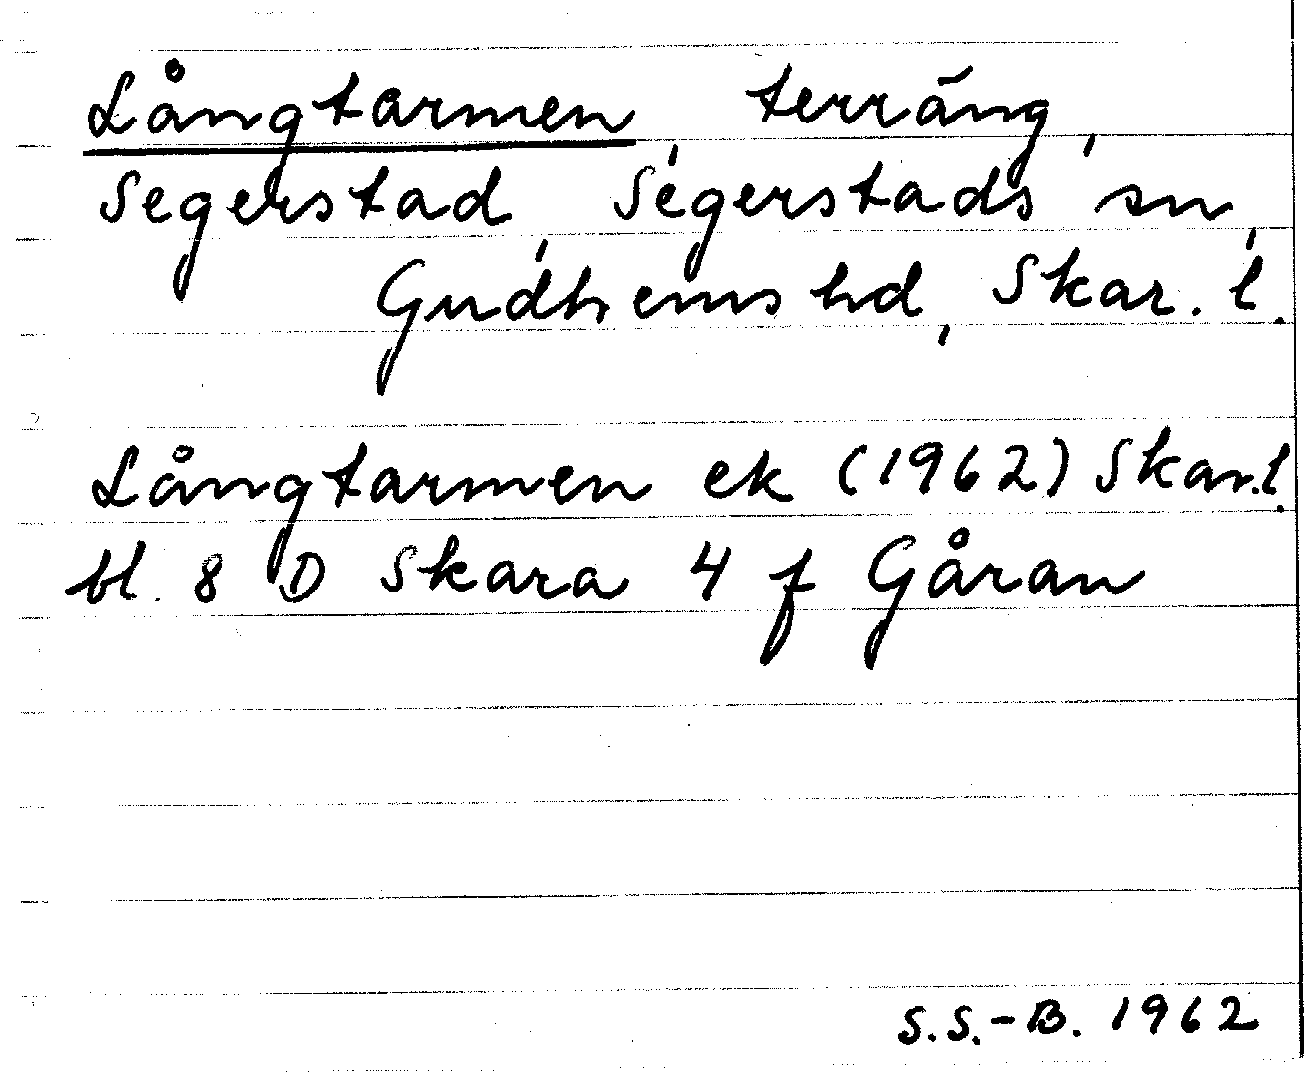 Långtarmen, terräng,
Segerstad, Segerstads sn,
Gudhems hd, Skar. l.
Långtarmen ek (1962) Skar.l.
bl. 8 D Skara 4 f Gåran
S.S.-B. 1962